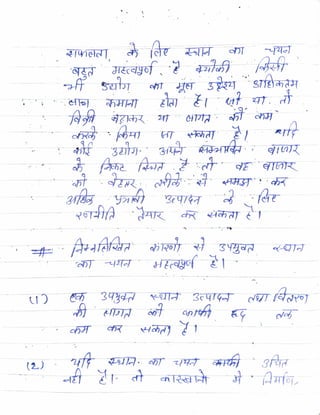 सफलता के लिए स्थान का चयन
बहुत महत्वपूर्ण है क्योंकी किसी
भी उद्योग का मूल उद्देश्य अधिकतम
लाभ कमाना होता है। जो या तो
बिक्री बढ़ाकर या लागत को कम
करके किया जा सकता है। यदि
कोई उद्योग अपने सम्भावित बाजार
के निकट स्थित है तो वह बाजार
को बेहतर तरीके से समझ कर
अधिक प्रभावी उत्पादन के लिए
रणनीति तैयार कर सकता है।
निम्नलिखित कारणो से उपयुक्त स्थान
का चयन महत्वपूर्ण है।
(1) एक उपयुक्त स्थान उत्पादन तथा वितरण
की लागत को काफी हद तक
कम कर सकता है।
(2) यदि स्थान का चयन काफी उचित
नही है। तो कारखानो मे निर्माण,